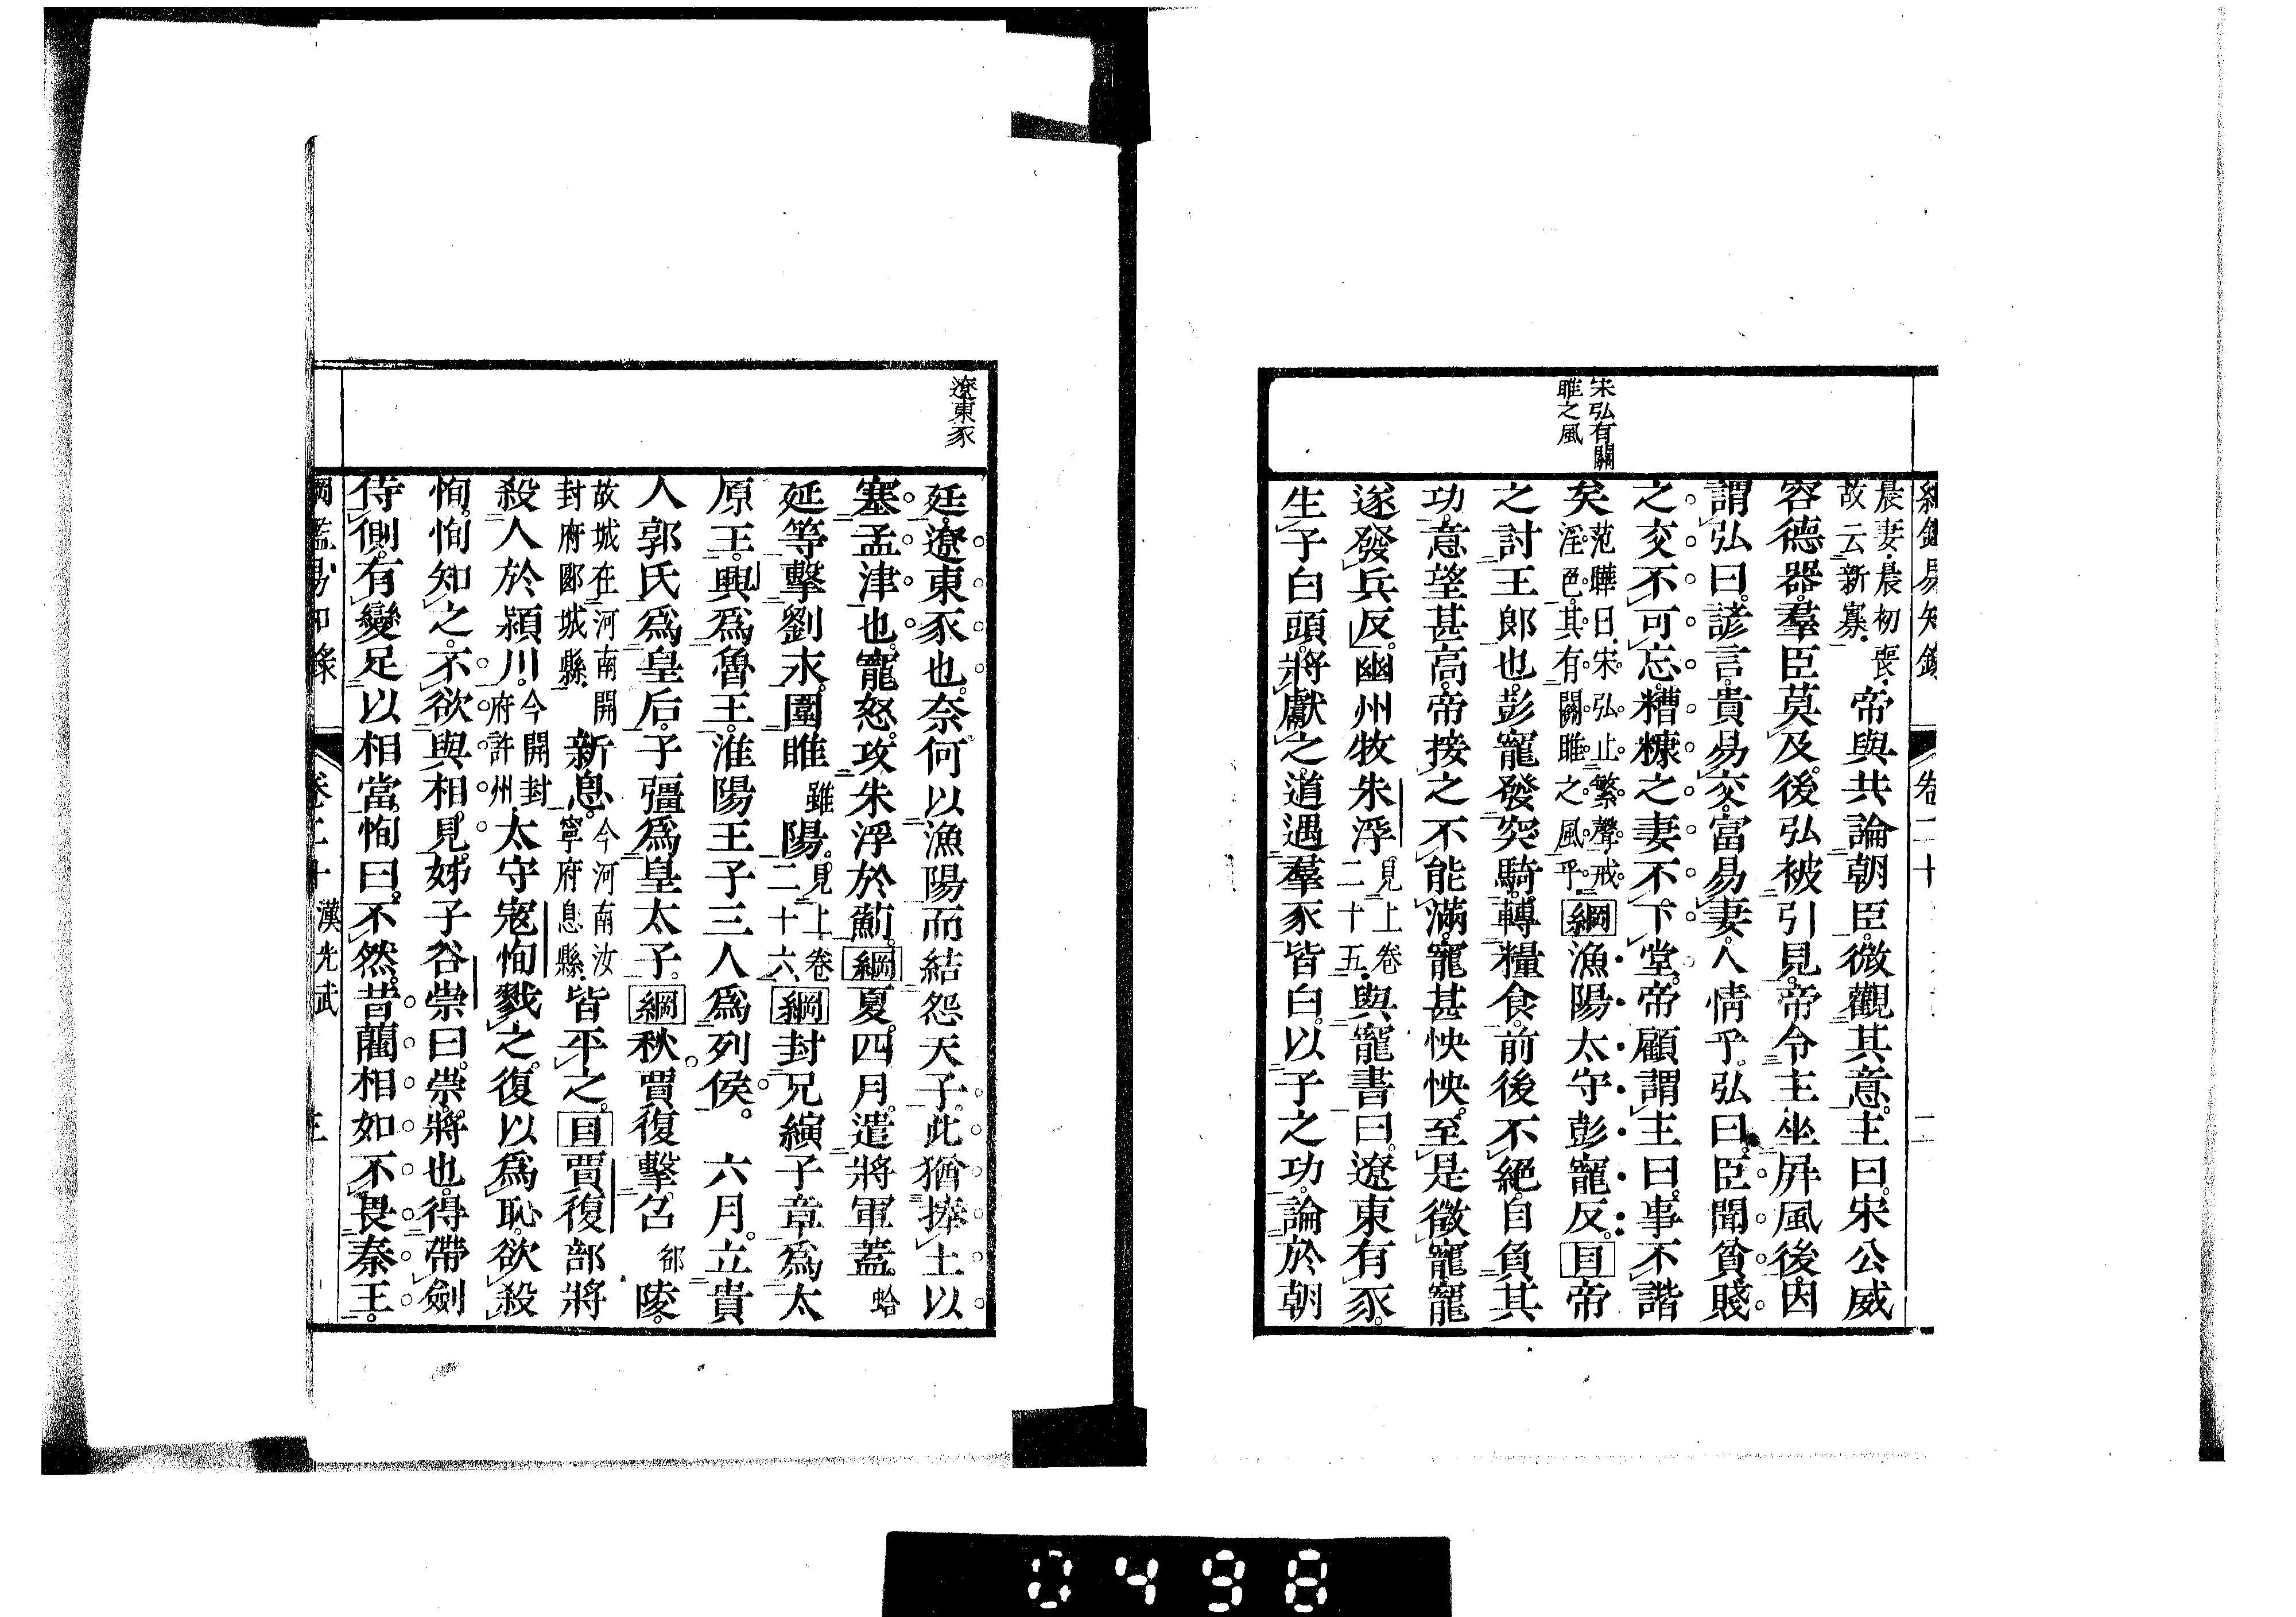 綱鑑易知錄 卷二十 二
宋弘有關
雎之風
晨妻.晨初喪.
故云新寡.
帝與共論朝臣。微觀其意。主曰。宋公威
容德器。羣臣莫及。後弘被引見。帝令主坐屏風後。因
謂弘曰。諺言。貴易交。富易妻。人情乎。弘曰。臣聞貧賤
之交不可忘。糟糠之妻不下堂。帝顧謂主曰。事不諧
矣
范曄曰.宋弘止繁聲.戒
淫色.其有關雎之風乎.
綱漁陽太守彭寵反。目帝
之討王郎也。彭寵發突騎。轉糧食。前後不絕。自負其
功。意望甚高。帝接之不能滿。寵甚怏怏。至是徵寵。寵
遂發兵反。幽州牧朱浮。
見上卷
二十五.
與寵書曰。遼東有豕。
生子白頭。將獻之。道遇羣豕皆白。以子之功。論於朝
遼東豕
廷。遼東豕也。奈何以漁陽而結怨天子。此猶捧土以
塞孟津也。寵怒。攻朱浮於薊。綱夏。四月。遣將軍蓋。蛤
延等擊劉永。圍睢雖陽。
見上卷
二十六.
綱封兄縯子章爲太
原王。興爲魯王。淮陽王子三人爲列侯。 六月。立貴
人郭氏爲皇后。子彊爲皇太子。綱秋。賈復擊召郤陵。
故城在河南開
封府郾城縣.
新息。
今河南汝
寧府息縣.
皆平之。目賈復部將
殺人於潁川。
今開封
府許州.
太守寇恂戮之。復以爲恥。欲殺
恂。恂知之。不欲與相見。姊子谷崇曰。崇。將也。得帶劍
侍側。有變足以相當。恂曰。不然。昔藺相如不畏秦王。
綱鑑易知錄 卷二十 漢光武 三
0498